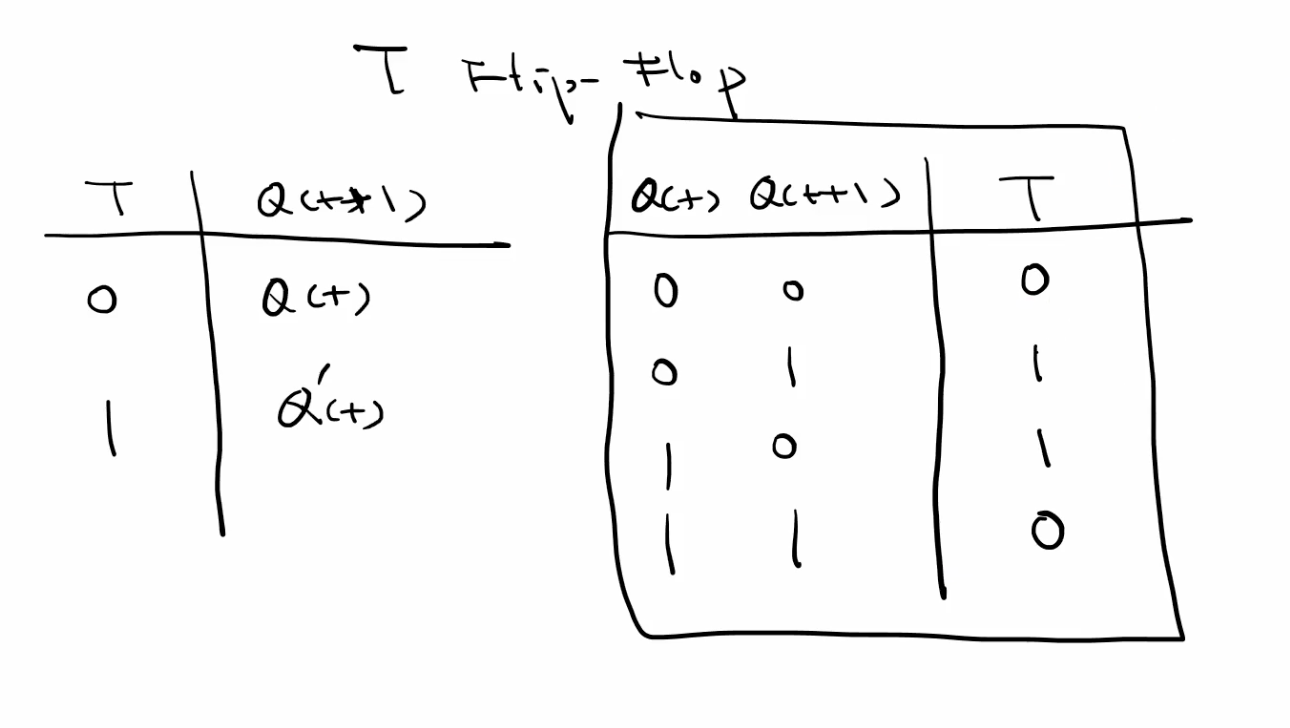 T Flip-Flop
T Q(t+1)
0 Q(t)
1 Q'(t)
Q(t) Q(t+1) T
0 0 0
0 1 1
1 0 1
1 1 0